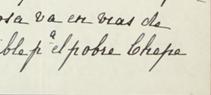 osa va en vias de
ible pa el pobre Chepe